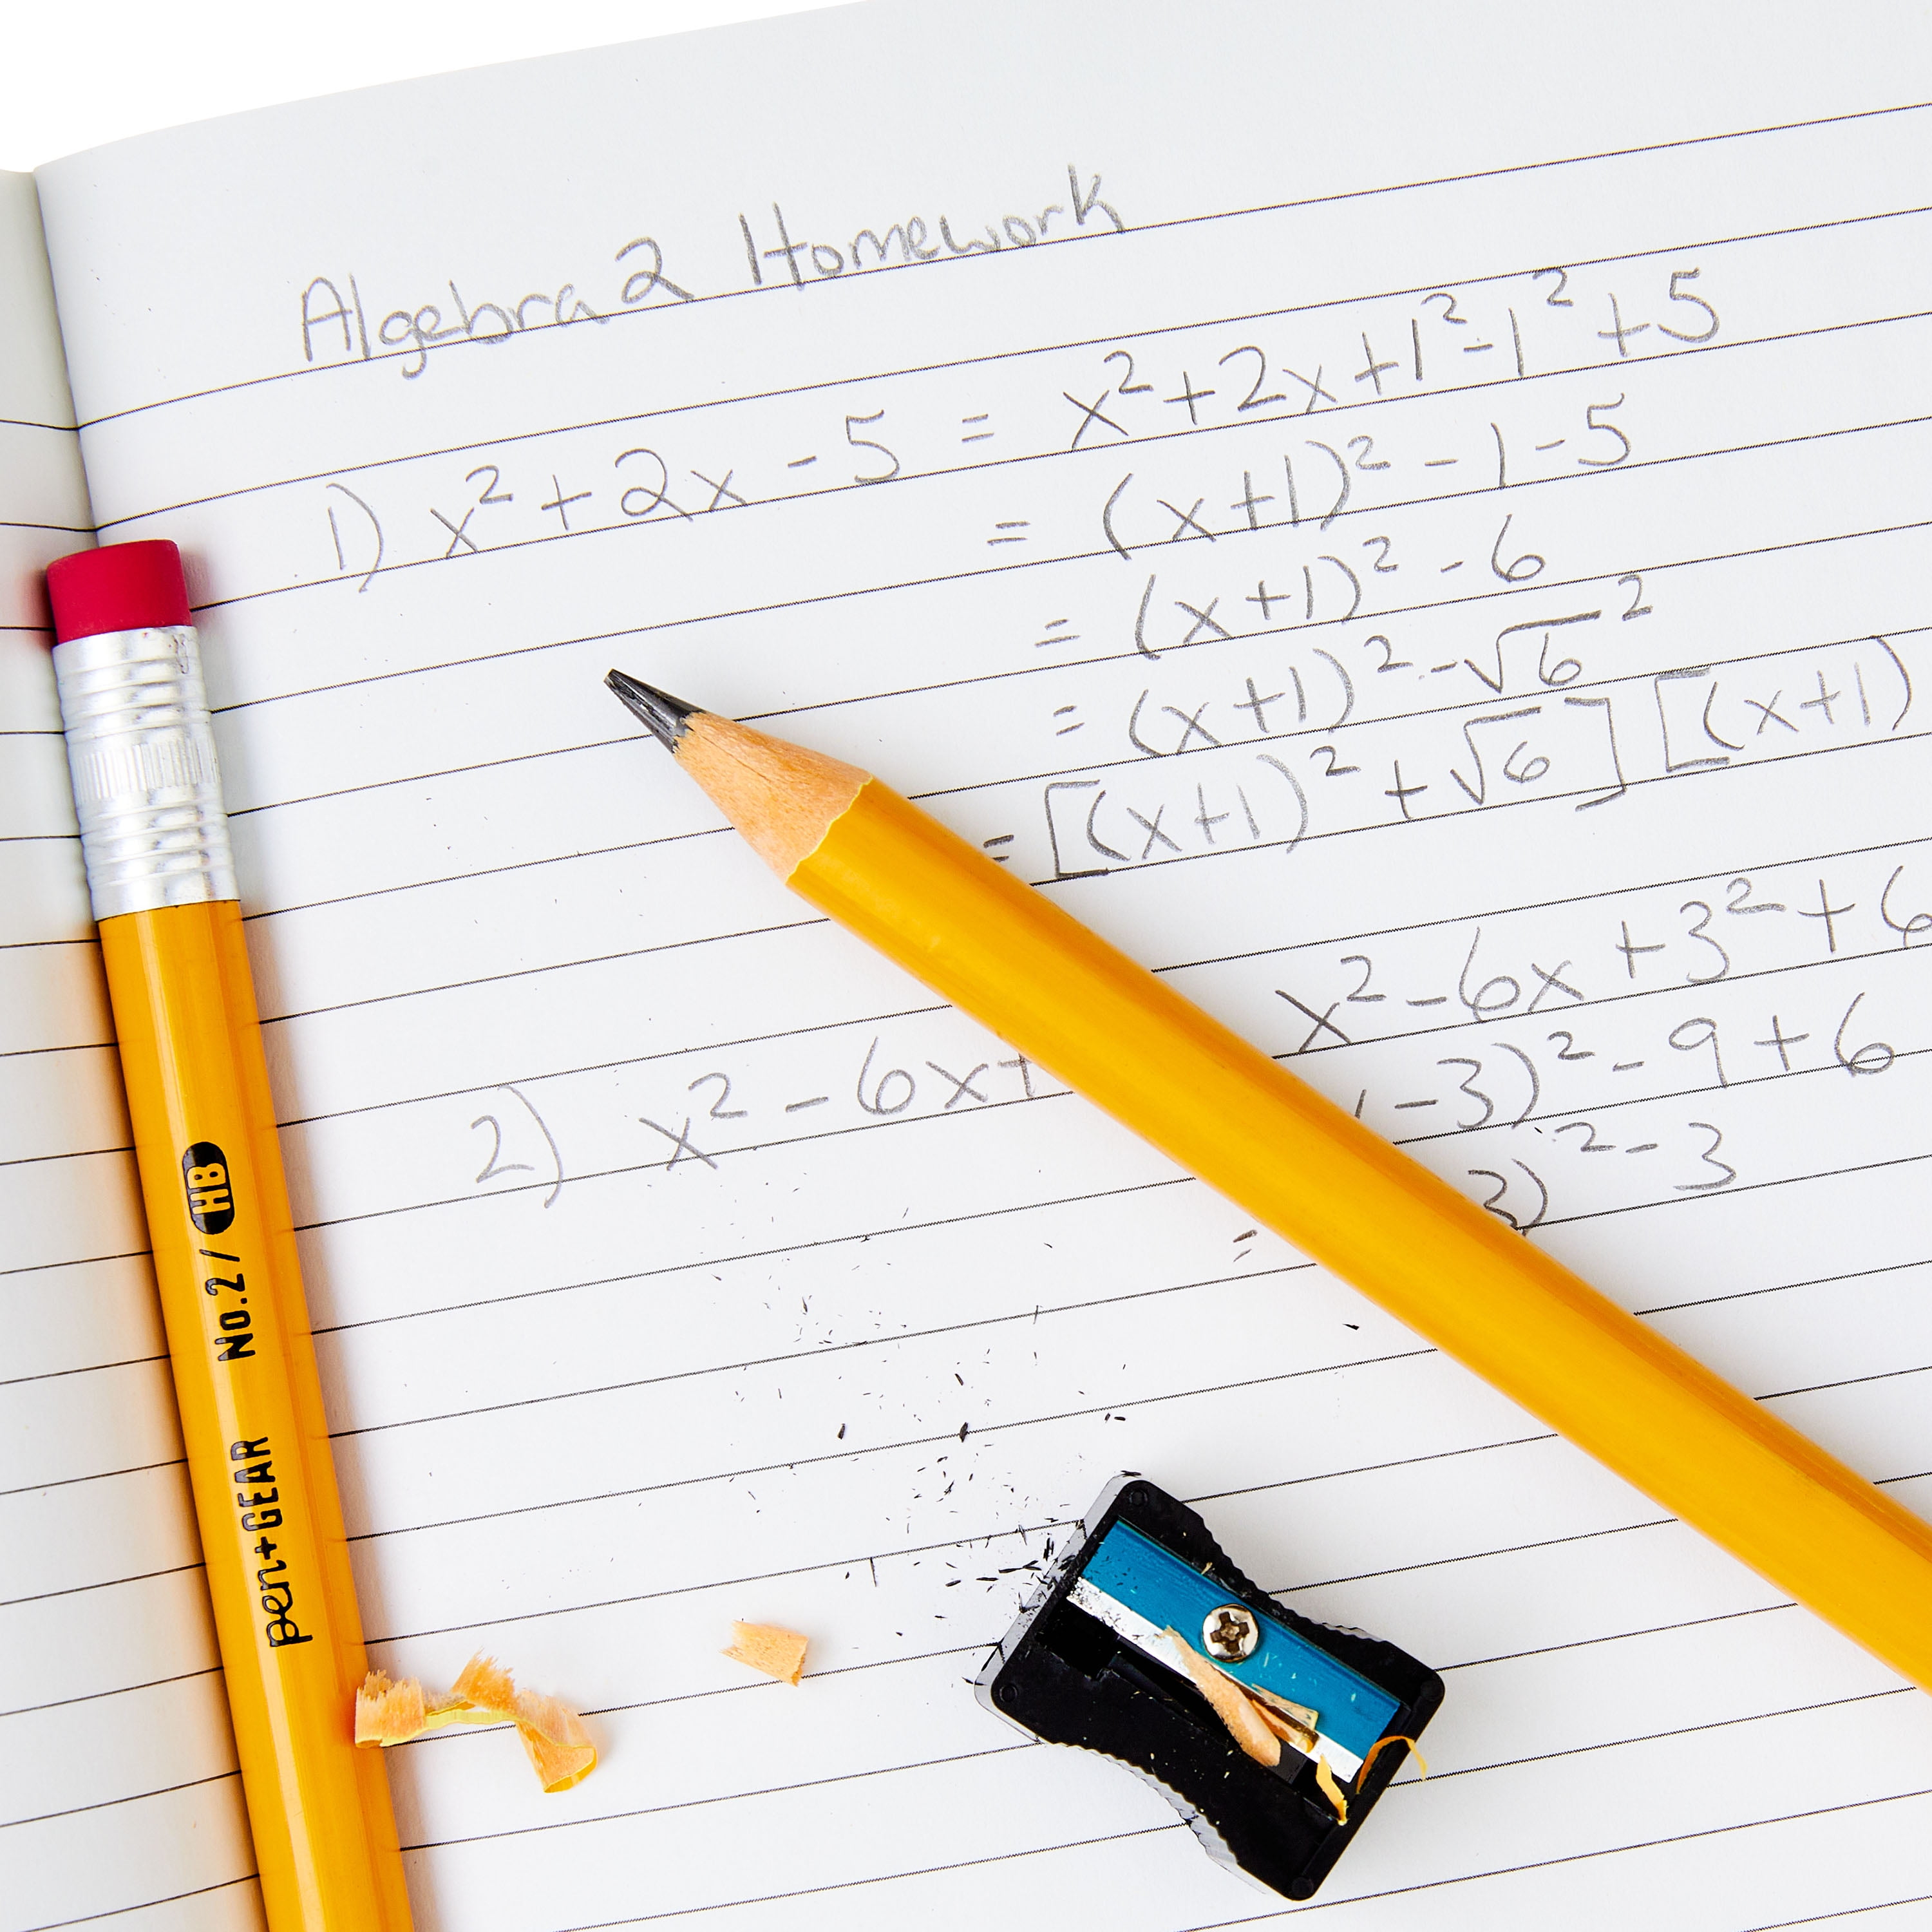 Algebra 2 Homework
1) x² + 2x - 5 = x² + 2x + 1² - 1² + 5
= (x+1)² - 1 - 5
= (x+1)² - 6
= (x+1)² - √6²
= [(x+1)² + √6] [(x+1)
2) x² - 6x + x² - 6x + 3² + 6
-3)² - 9 + 6
= 3)² - 3
No.2 / HB
pen+GEAR